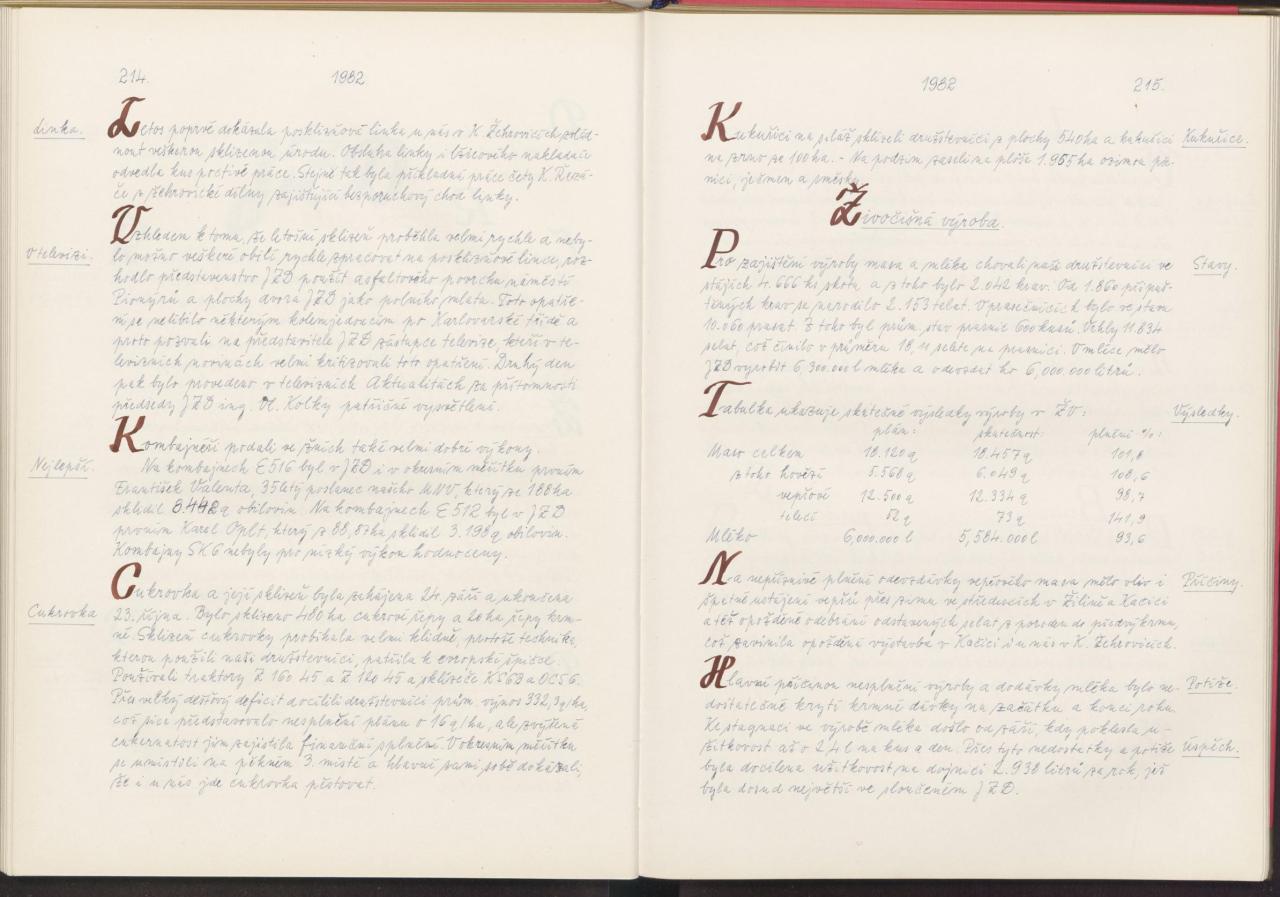 214.
1982
Linka.
Letos poprvé dokázala posklizňová linka u nás v K. Žehrovicích pojed-
nout veškerou sklizenou úrodu. Obsluha linky i lžícového nakladače
odvedla kus poctivé práce. Stejně tak byla příkladná práce čety K. Řezá-
če z žehrovické dílny zajišťující bezporuchový chod linky.
Vzhledem k tomu, že letošní sklizeň proběhla velmi rychle a neby-
V televizi.
lo možno veškeré obilí rychle zpracovat na posklizňové lince, roz-
hodlo představenstvo JZD použít asfaltového povrchu náměstí
Pionýrů a plochy dvora JZD jako polního mlatu. Toto opatře-
ní se nelíbilo některým kolemjedoucím po Karlovarské třídě a
proto pozvali na představitele JZD zástupce televize, kteří v te-
levizních novinách velmi kritizovali toto opatření. Druhý den
pak bylo provedeno v televizních Aktualitách za přítomnosti
předsedy JZD ing. Vl. Kolky patřičné vysvětlení.
Kombajnéři podali ve žních také velmi dobré výkony.
Nejlepší.
Na kombajnech E 516 byl v JZD i v okresním měřítku prvním
František Valenta, 35letý poslanec našeho MNV, který ze 188 ha
sklidil 8.442 q obilovin. Na kombajnech E 512 byl v JZD
prvním Karel Oplt, který z 88,87 ha sklidil 3.198 q obilovin.
Kombajny SK 6 nebyly pro nízký výkon hodnoceny.
Cukrovka a její sklizeň byla zahájena 24. září a ukončena
Cukrovka
23. října. Bylo sklizeno 488 ha cukrové řepy a 20 ha řepy krm-
né. Sklizeň cukrovky probíhala velmi klidně, protože technika,
kterou použili naši družstevníci, patřila k evropské špičce.
Používali traktory Z 160 45 a Z 120 45 a sklízeče KS 6 B a OCS 6.
Přes velký dešťový deficit docílili družstevníci prům. výnos 332,3 q/ha,
což sice představovalo nesplnění plánu o 16 q/ha, ale zvýšená
cukernatost jim zajistila finanční splnění. V okresním měřítku
se umístili na pěkném 3. místě a hlavně sami sobě dokázali,
že i u nás jde cukrovka pěstovat.
1982
215.
Kukuřici na siláž sklízeli družstevníci z plochy 540 ha a kukuřici
Kukuřice.
na zrno ze 100 ha. - Na podzim zaseli na ploše 1.955 ha ozimou pše-
nici, ječmen a směsky.
Živočišná výroba.
Pro zajištění výroby masa a mléka chovali naši družstevníci ve
Stavy.
stájích 4.666 ks skotu a z toho bylo 2.042 krav. Od 1.860 připuš-
těných krav se narodilo 2.153 telat. V prasečnících bylo ve stavu
10.060 prasat. Z toho byl prům. stav prasnic 600 kusů. Vrhly 11.834
selat, což činilo v průměru 18,11 selete na prasnici. V mléce mělo
JZD vyrobit 6,300.000 l mléka a odevzdat ho 6,000.000 litrů.
Tabulka ukazuje skutečné výsledky výroby v ŽV:
Výsledky.
plán: skutečnost: plnění %:
Maso celkem 18.120 q 18.457 q 101,8
z toho hovězí 5.568 q 6.049 q 108,6
vepřové 12.500 q 12.334 q 98,7
telecí 52 q 73 q 141,9
Mléko 6,000.000 l 5,584.000 l 93,6
Na nepříznivé plnění odevzdávky vepřového masa mělo vliv i
Příčiny.
špatné ustájení vepřů přes zimu ve střediscích v Žilině a Kačici
a též opožděné odebrání odstavených selat z poroden do předvýkrmu,
což zavinila opožděná výstavba v Kačici i u nás v K. Žehrovicích.
Hlavní příčinou nesplnění výroby a dodávky mléka bylo ne-
Potíže.
dostatečné krytí krmné dávky na začátku a konci roku.
Ke stagnaci ve výrobě mléka došlo od září, kdy poklesla u-
žitkovost až o 2,4 l na kus a den. Přes tyto nedostatky a potíže
Úspěch.
byla docílena užitkovost na dojnici 2.938 litrů za rok, jež
byla dosud největší ve sloučeném JZD.